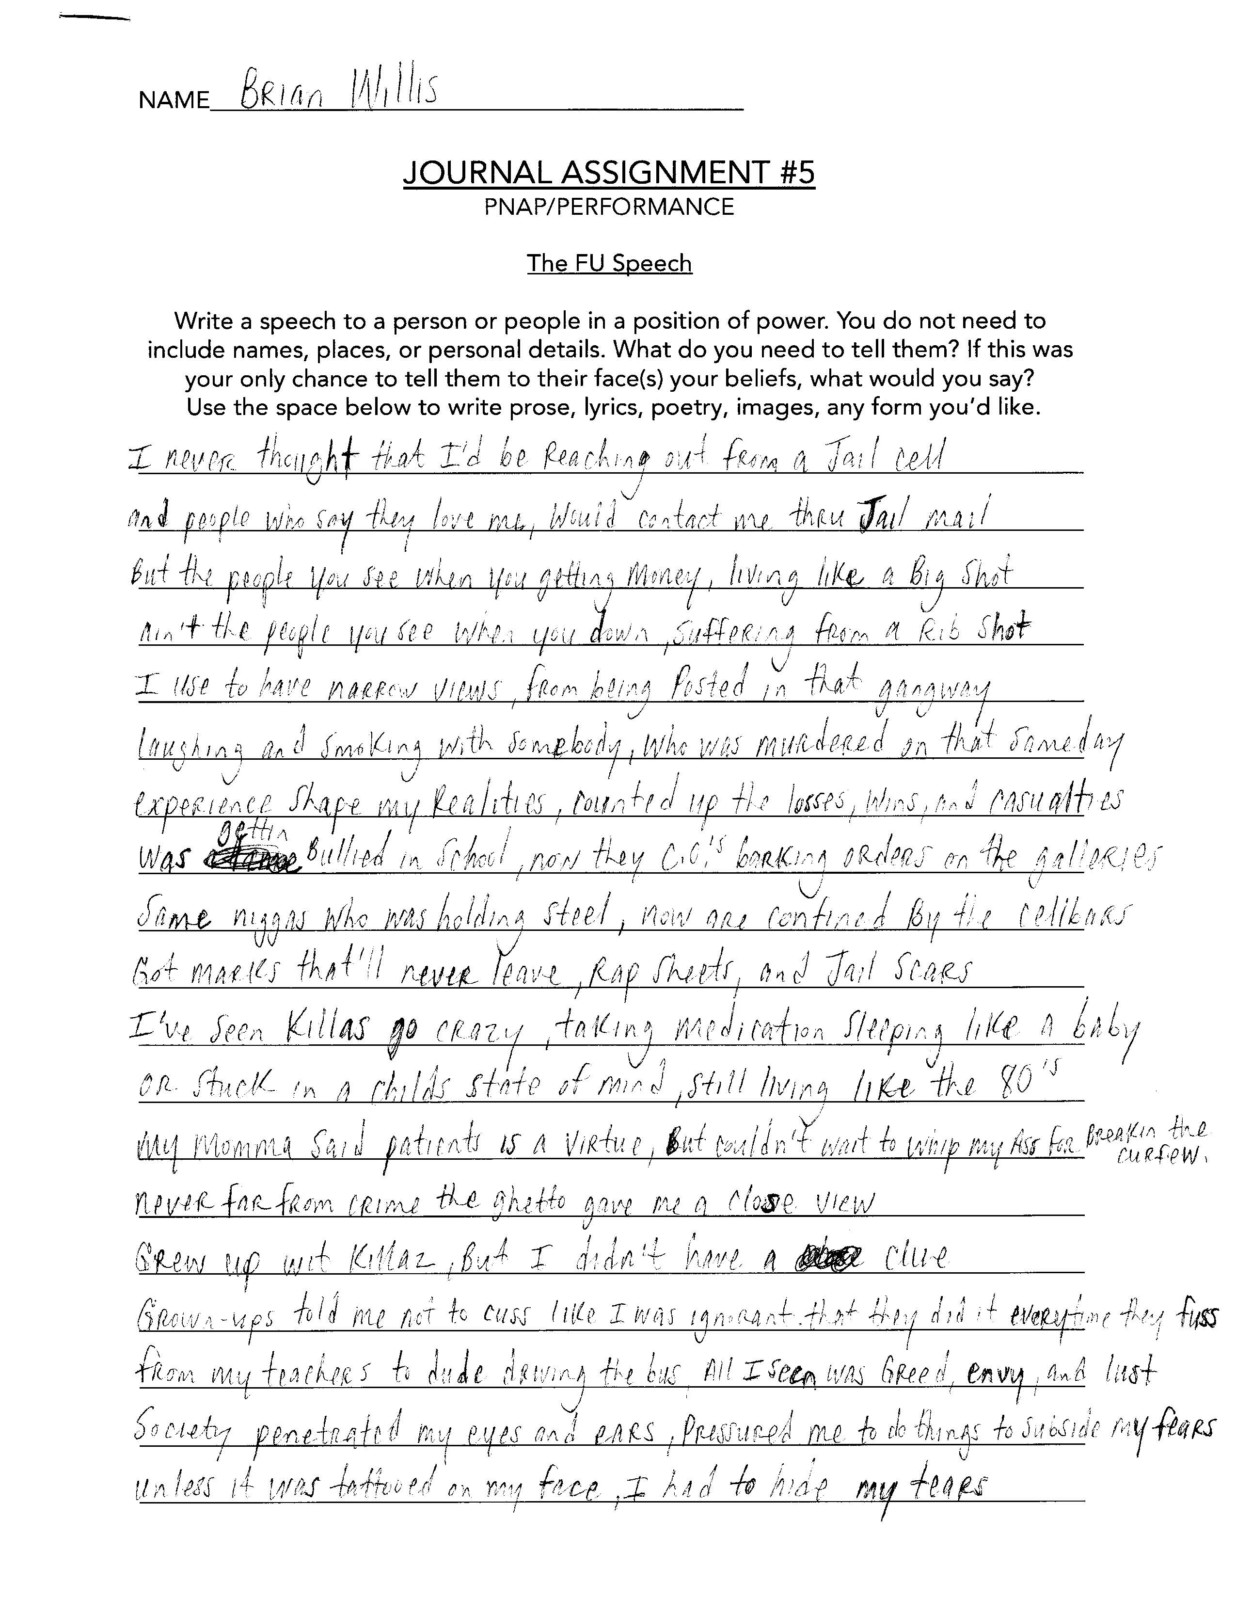 NAME Brian Willis
JOURNAL ASSIGNMENT #5
PNAP/PERFORMANCE
The FU Speech
Write a speech to a person or people in a position of power. You do not need to
include names, places, or personal details. What do you need to tell them? If this was
your only chance to tell them to their face(s) your beliefs, what would you say?
Use the space below to write prose, lyrics, poetry, images, any form you'd like.
I never thought that I'd be Reaching out from a Jail cell
and people who say they love me, Would contact me thru Jail mail
But the people you see when you getting Money, living like a Big Shot
ain't the people you see when you down, suffering from a Rib Shot
I use to have narrow views, from being Posted in that gangway
laughing and smoking with somebody, who was murdered on that sameday
experience shape my Realities, counted up the losses, wins, and casualties
was gettin Bullied in School, now they C.O.'s barking orders on the galleries
Same niggas who was holding steel, now are confined By the cellbars
Got marks that'll never leave, Rap Sheets, and Jail Scars
I've seen Killas go crazy, taking medication sleeping like a baby
or stuck in a childs state of mind, still living like the 80's
my momma said patients is a virtue, But couldn't wait to whip my Ass for Breakin the curfew.
never far from crime the ghetto gave me a close view
Grew up wit Killaz, But I didn't have a clue
Grown-ups told me not to cuss like I was ignorant that they did it everytime they fuss
from my teachers to dude driving the bus, All I seen was Greed, envy, and lust
Society penetrated my eyes and ears, Pressured me to do things to subside my fears
unless it was tattooed on my face, I had to hide my tears